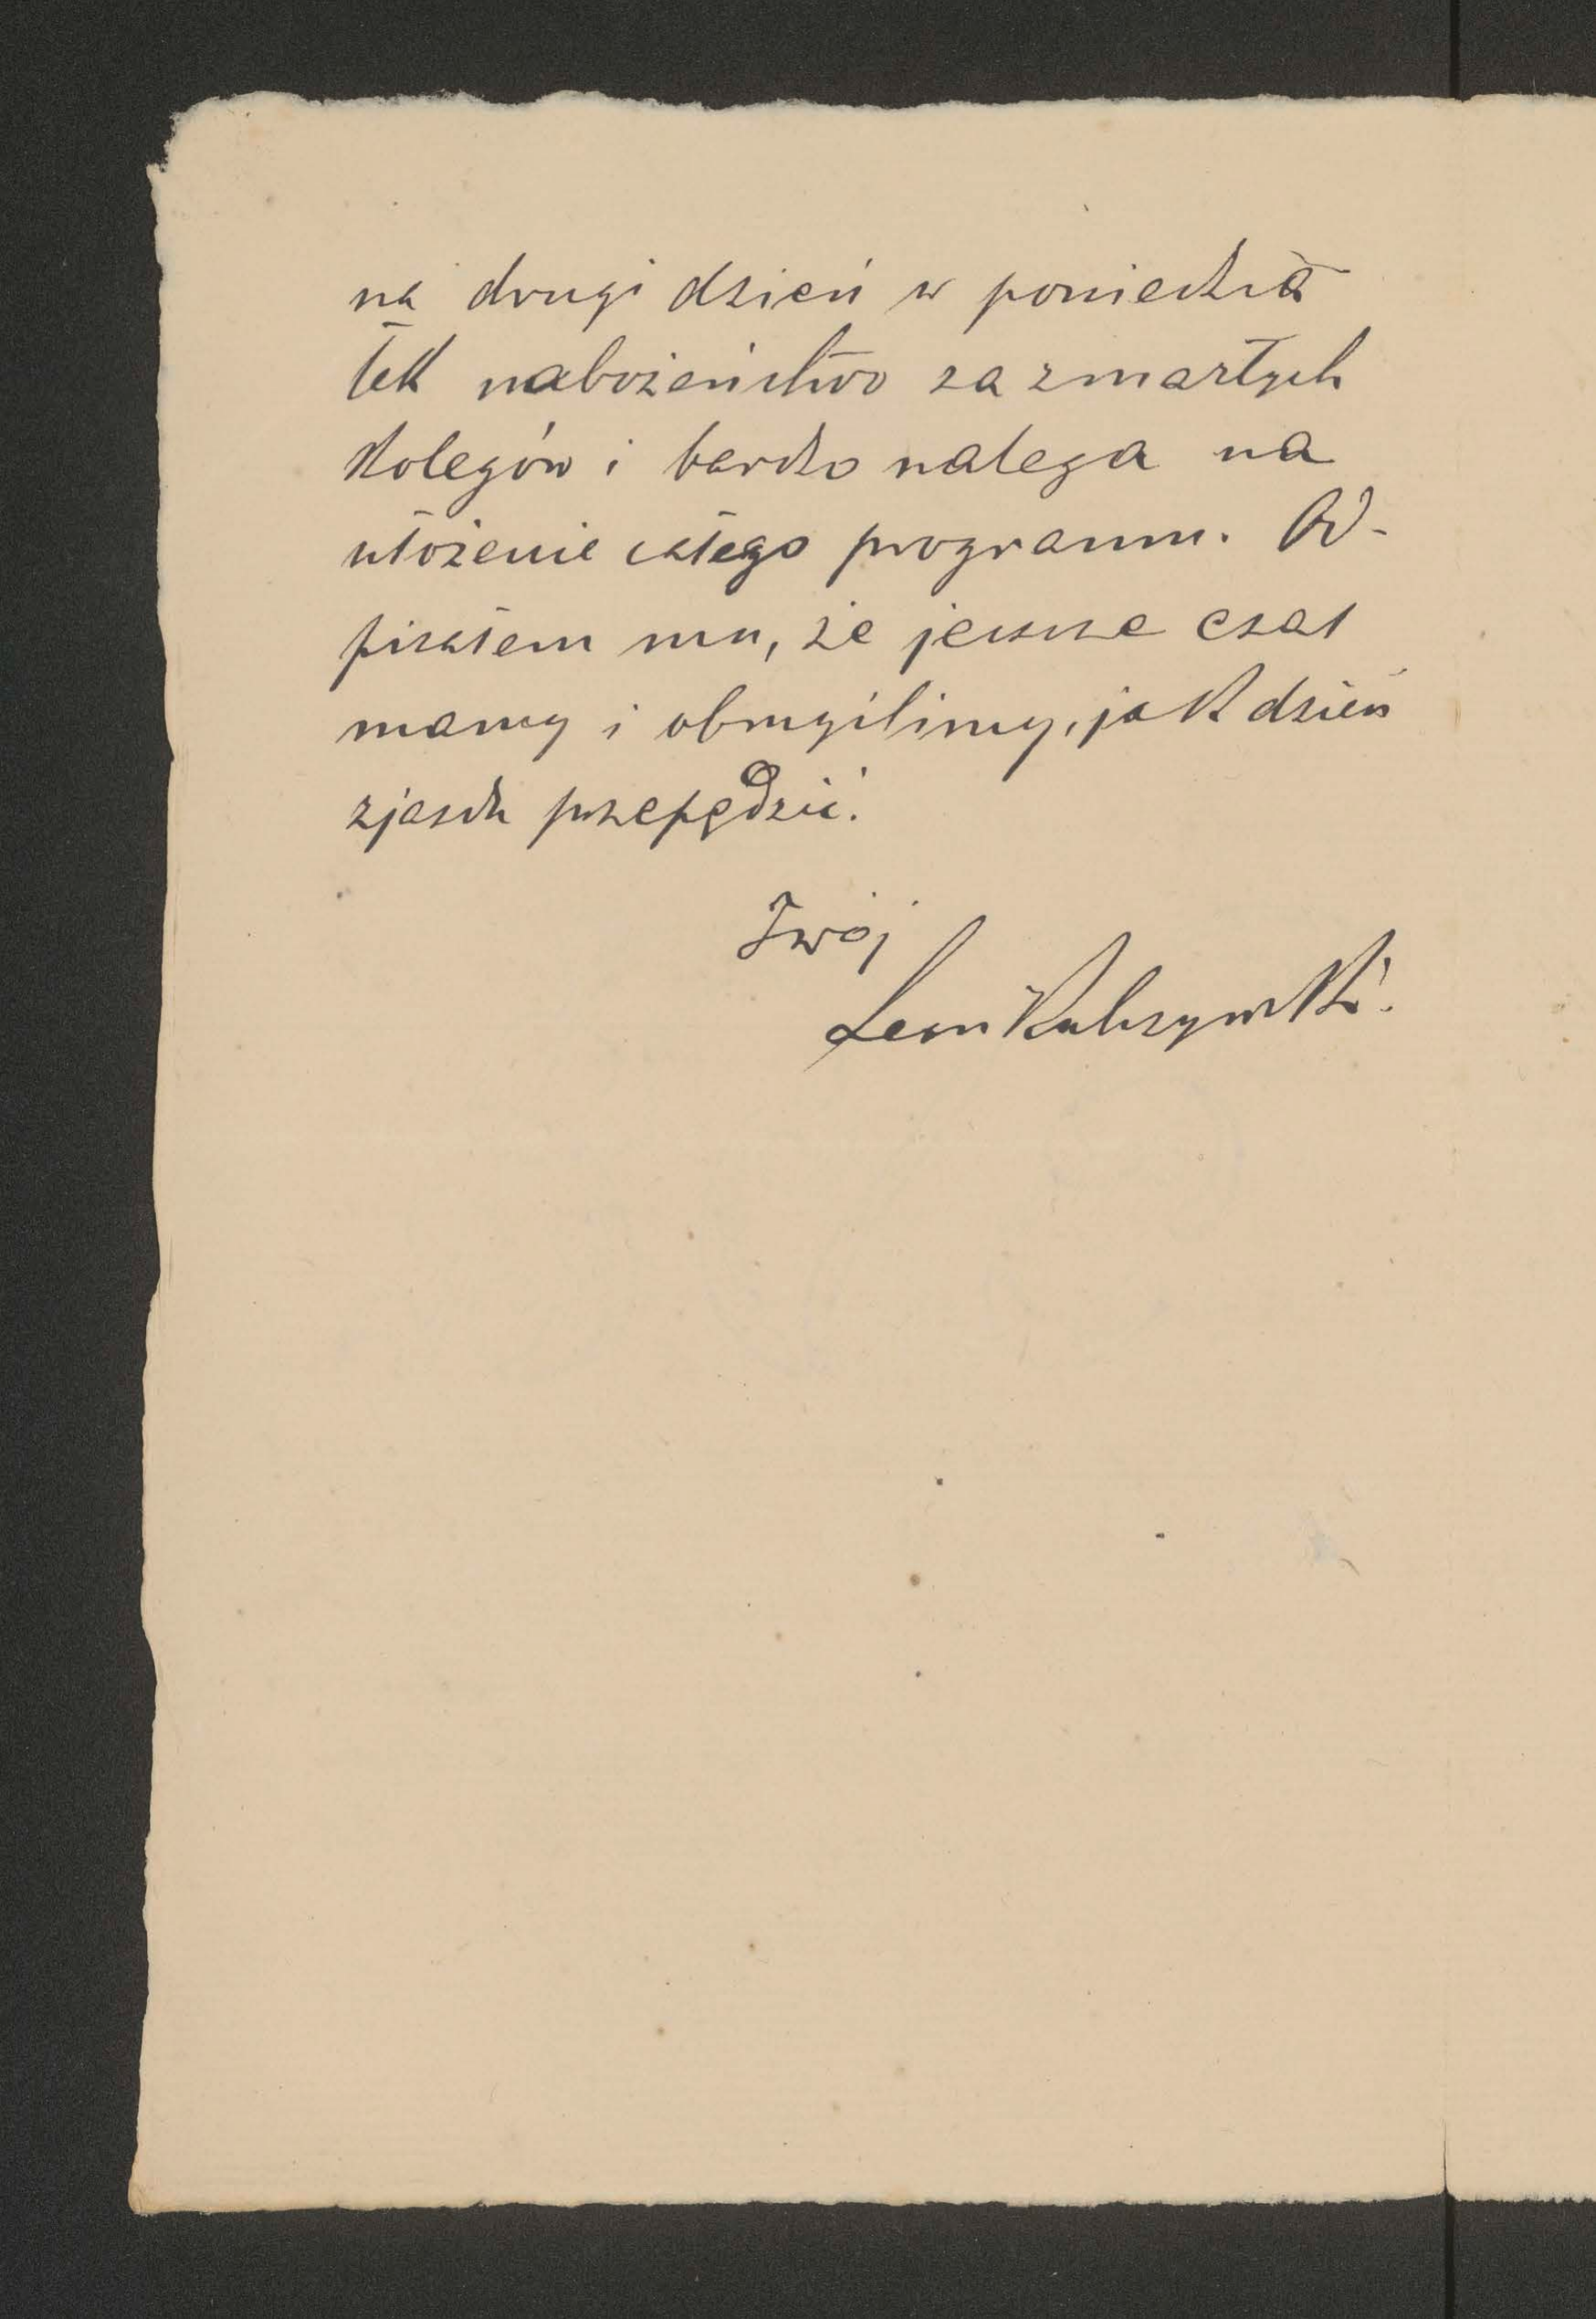 na drugi dzień w poniedzia
łek nabożeństwo za zmarłych
kolegów i bardzo nalega na
ułożenie całego programu. Od-
pisałem mu, że jeszcze czas
mamy i obmyślimy, jak dzień
zjazdu przepędzić.
Twój
Leon